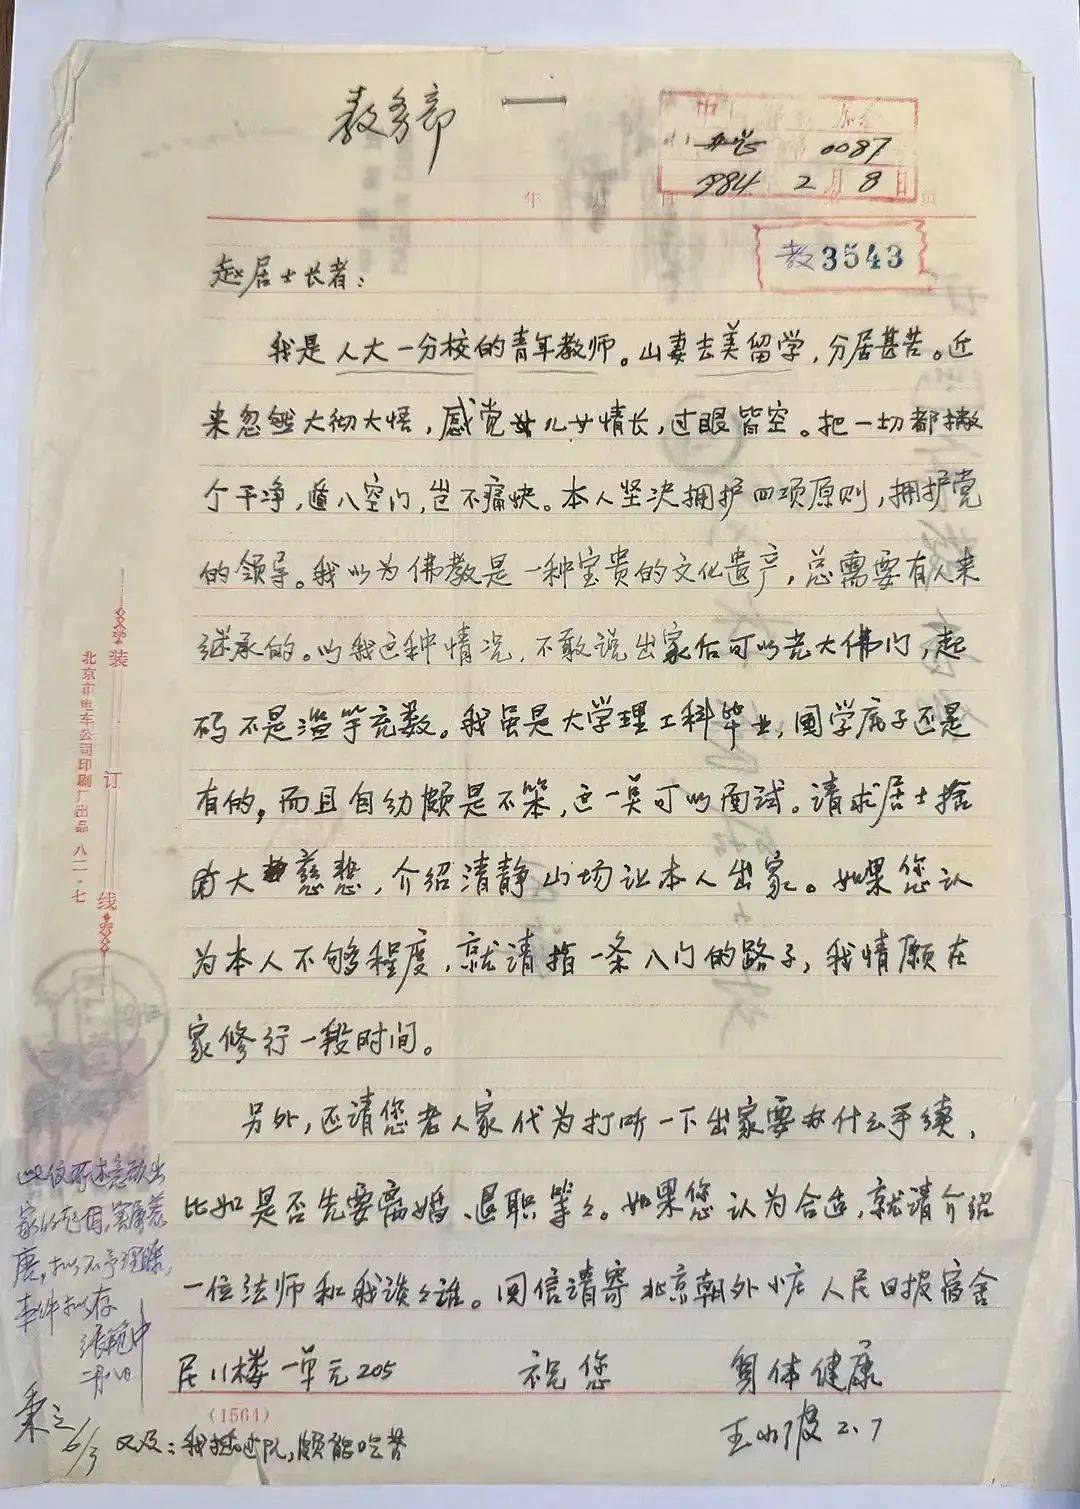 教务部
0087
1984 2月8日
年 月 日
教3543
赵居士长者：
我是人大一分校的青年教师。山妻去美留学，分居甚苦。近
来忽然大彻大悟，感觉儿女情长，过眼皆空。把一切都撇
个干净，遁入空门，岂不痛快。本人坚决拥护四项原则，拥护党
的领导。我以为佛教是一种宝贵的文化遗产，总需要有人来
继承的。以我这种情况，不敢说出家后可以光大佛门，起
码不是滥竽充数。我虽是大学理工科毕业，国学底子还是
有的，而且自幼颇是不笨，这一点可以面试。请求居士捨
大慈悲，介绍清静山场让本人出家。如果您认
为本人不够程度，就请指一条入门的路子，我情愿在
家修行一段时间。
另外，还请您老人家代为打听一下出家要办什么手续，
比如是否先要离婚、退职等々。如果您认为合适，就请介绍
一位法师和我谈々话。回信请寄北京朝外小庄人民日报宿舍
民11楼一单元205 祝您 身体健康
王小波 2.7
(1564)
又及：我插过队，颇能吃苦
装订线
北京市电车公司印刷厂出品 八二·七
此信所述急欲出
家的起因，实属荒
唐，拟不予理睬，
来件拟存
二月八日
6/3